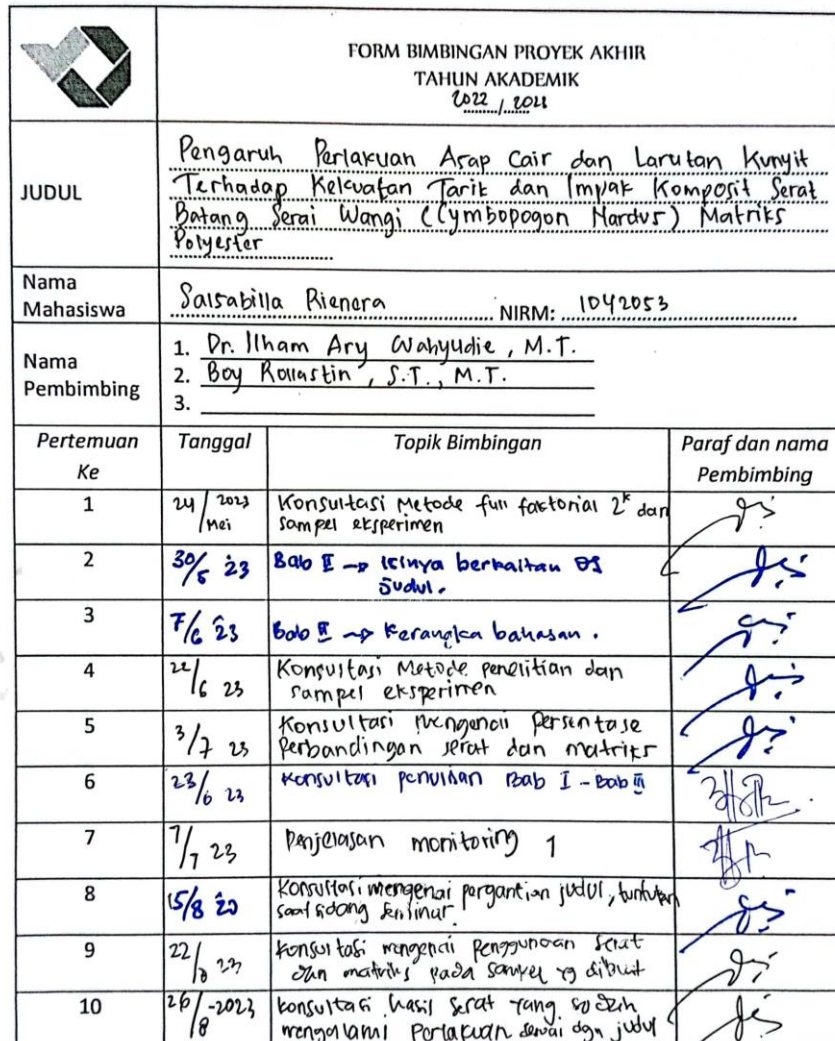 FORM BIMBINGAN PROYEK AKHIR
TAHUN AKADEMIK
2022 / 2023
JUDUL
Pengaruh Perlakuan Asap Cair dan Larutan Kunyit
Terhadap Kekuatan Tarik dan Impak Komposit Serat
Batang Serai Wangi (Cymbopogon Nardus) Matriks
Polyester
Nama
Mahasiswa
Salsabilla Rienera NIRM: 1042053
Nama
Pembimbing
1. Dr. Ilham Ary Wahyudie, M.T.
2. Boy Rollastin, S.T., M.T.
3.
Pertemuan
Ke
Tanggal
Topik Bimbingan
Paraf dan nama
Pembimbing
1
24/Mei 2023
Konsultasi Metode full faktorial 2^k dan
sampel eksperimen
2
30/5 23
Bab II → isinya berkaitan
Judul.
3
7/6 23
Bab II → Kerangka bahasan.
4
22/6 23
Konsultasi Metode penelitian dan
sampel eksperimen
5
3/7 23
Konsultasi mengenai Persentase
Perbandingan serat dan matriks
6
23/6 23
Konsultasi penulisan Bab I - Bab III
7
7/7 23
Penjelasan monitoring 1
8
15/8
Konsultasi mengenai pergantian judul, tuntutan
saat sidang seminar
9
22/8 23
Konsultasi mengenai Penggunaan serat
dan matriks pada sampel yg dibuat
10
26/8 -2023
Konsultasi hasil serat yang sudah
mengalami Perlakuan sesuai dgn judul